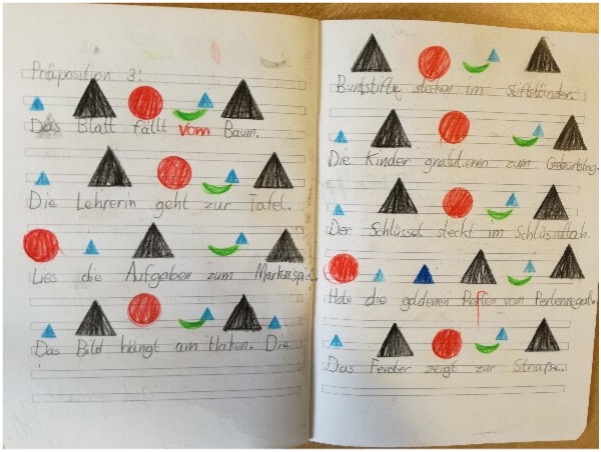 Präposition 3:
Das Blatt fällt vom Baum.
Die Lehrerin geht zur Tafel.
Lies die Aufgaben zum Markenspiel.
Das Bild hängt am Haken. Die
Buntstifte stecken im Stifteständer.
Die Kinder gratulieren zum Geburtstag.
Der Schlüssel steckt im Schlüsselloch.
Hole die goldenen Perlen vom Perlenregal.
Das Fenster zeigt zur Straße.